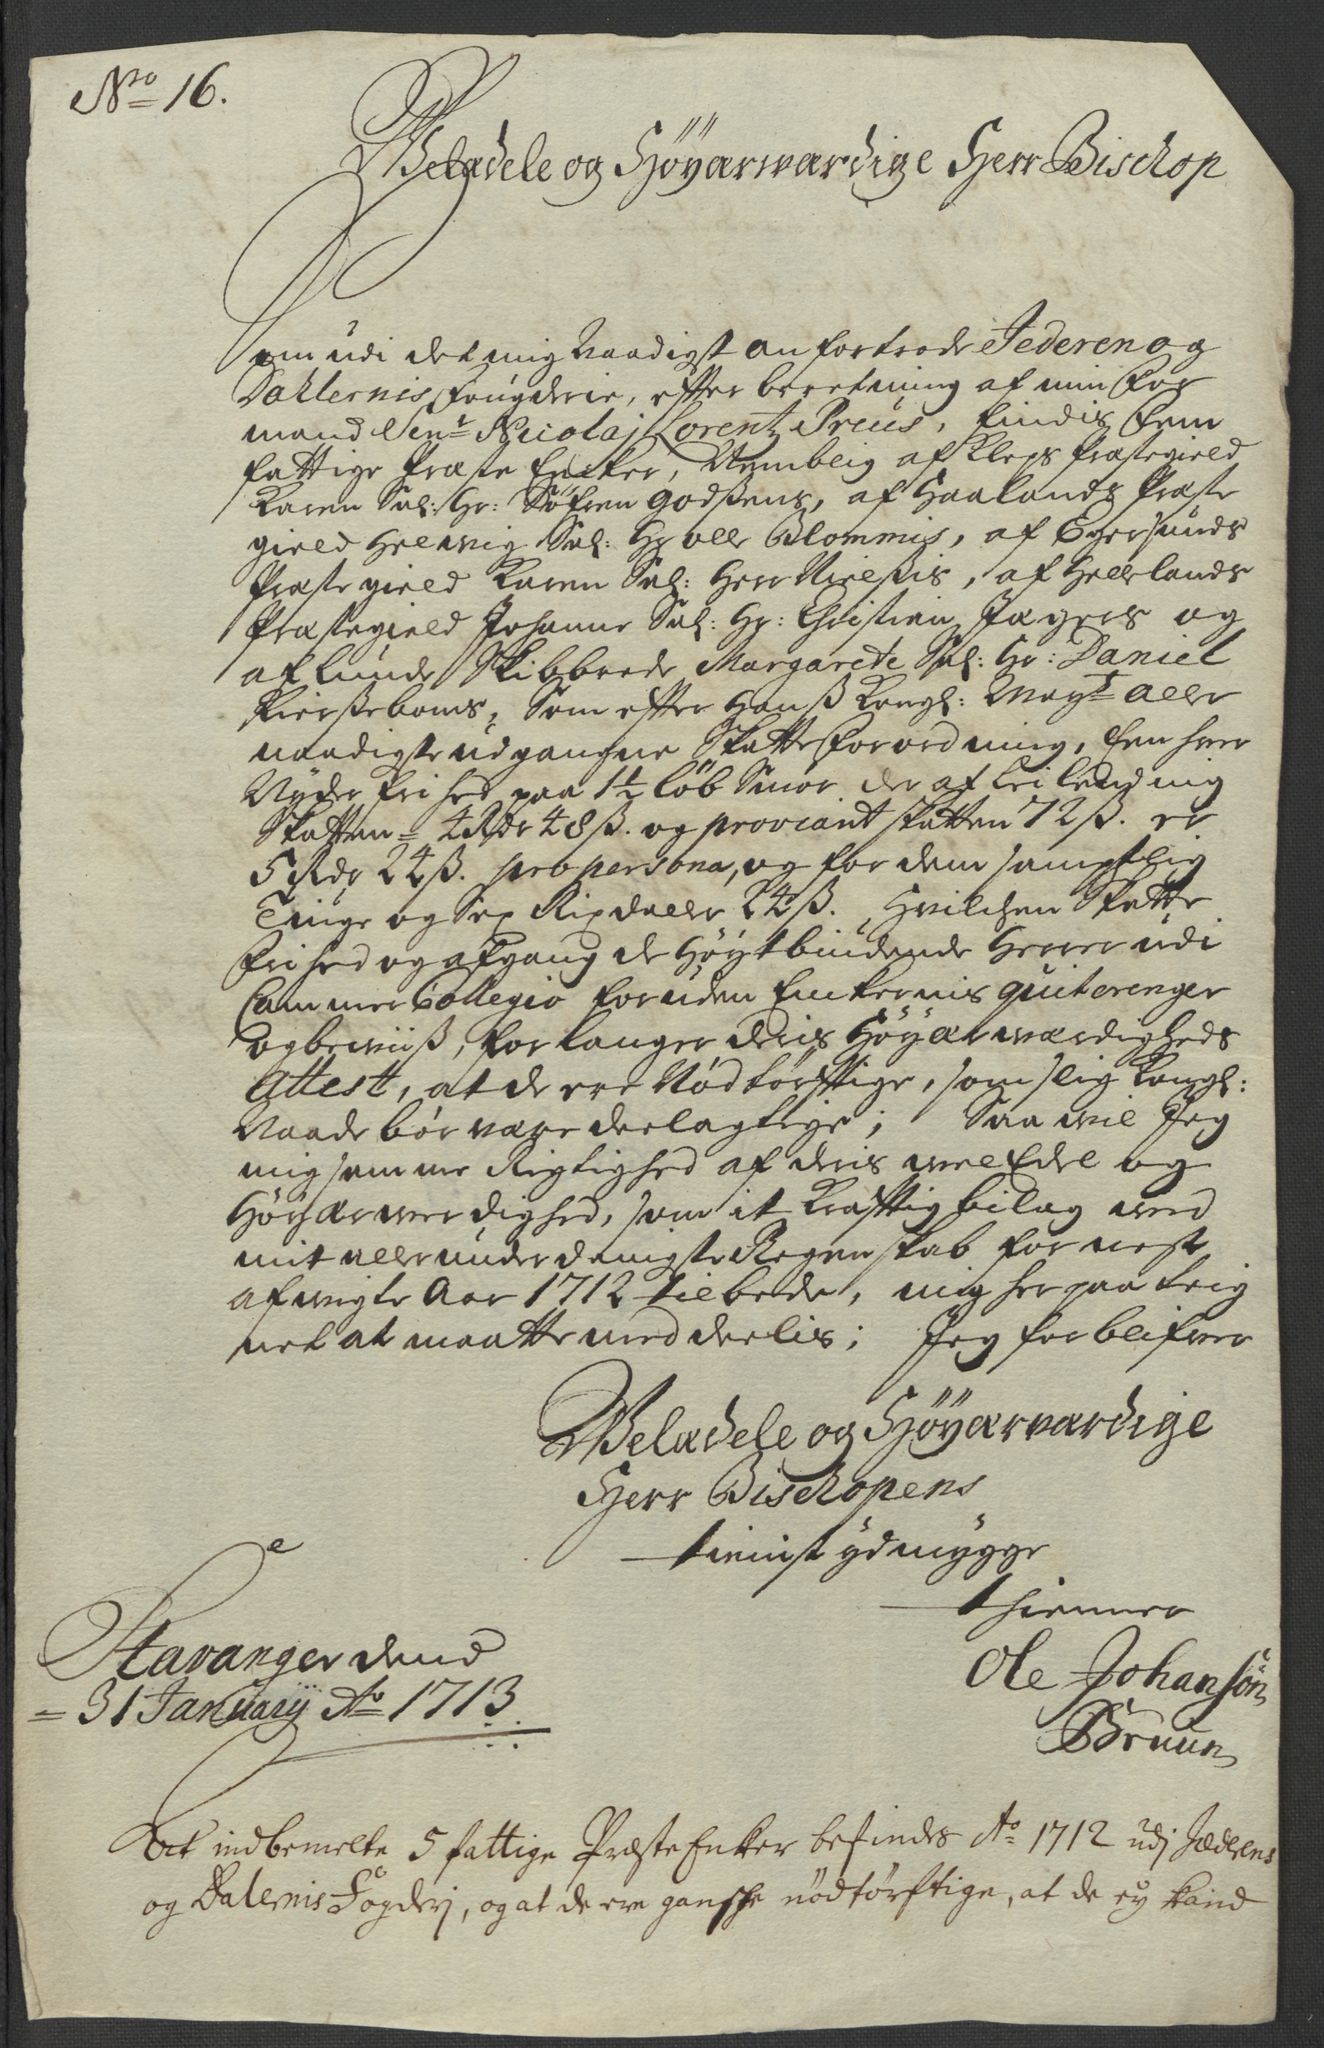 No 16.
Welædele og Höÿærværdige Herr Bischop
Som udi det mig Naadigst anfortrode Jederen og
Dallernis Fougderie, effter beretning af min For
mand Senr Nicolaj Lorentz Preus, findis Fem
fattige Præste Encker, Nemblig af Kleps Præstegield
Karen Sal: Hr: Söfren Godßens, af Haalands Præste
gield Helwig Sal: Hr Olle Blommis, af Egersunds
Præste gield Karen Sal: Herr Nielßis, af Hellelands
Præstegield Johanne Sal: Hr: Christien Jagers og
af Lunde Skibbrede Margarete Sal: Hr: Daniel
Kierßeboms, Som effter Hanß Kongl: Mayts Aller
naadigste udgangne Skatte Forordning, Een hver
Nÿder frihed paa 1½ löb Smör der af Leilending
Skatten = 4 Rdr 48ß. og proviant skatten 72ß. er
5 Rdr 24ß. pro persona, og for dem samptlig
Tiuge og Sex Rixdaller 24ß. Hvilchen Skatte
frihed og afgang de Höÿtbiudende Herrer udi
Cammer Collegio foruden Enkernis quiterenger
og beviiß, forlanger deris Höÿærværdigheds
Attest, at de ere Nödtörfftige, som slig Kongl:
Naade bör være deelagtige; Saa vil Jeg
mig samme Rigtighed af deris vel Edel og
Höÿærverdighed, som it kräfftig bilag ved
mit allerunderdanigste Regenskab for nest
afvigte Aar 1712 tilbede, mig her paa teig
net at maatte meddeelis; Jeg forblifver
Welædele og Höÿærværdige
Herr Bischopens
tienist ÿdmÿgge
thienner
Ole Johansön
Bruun
Stavanger dend
= 31 Januarij Ao 1713
At indbemelte 5 fattige Præste Enker befindes Ao 1712 udj Jædrens
og Dalernis Fogderj, og at de ere gansche nödtörftige, at de eÿ kand